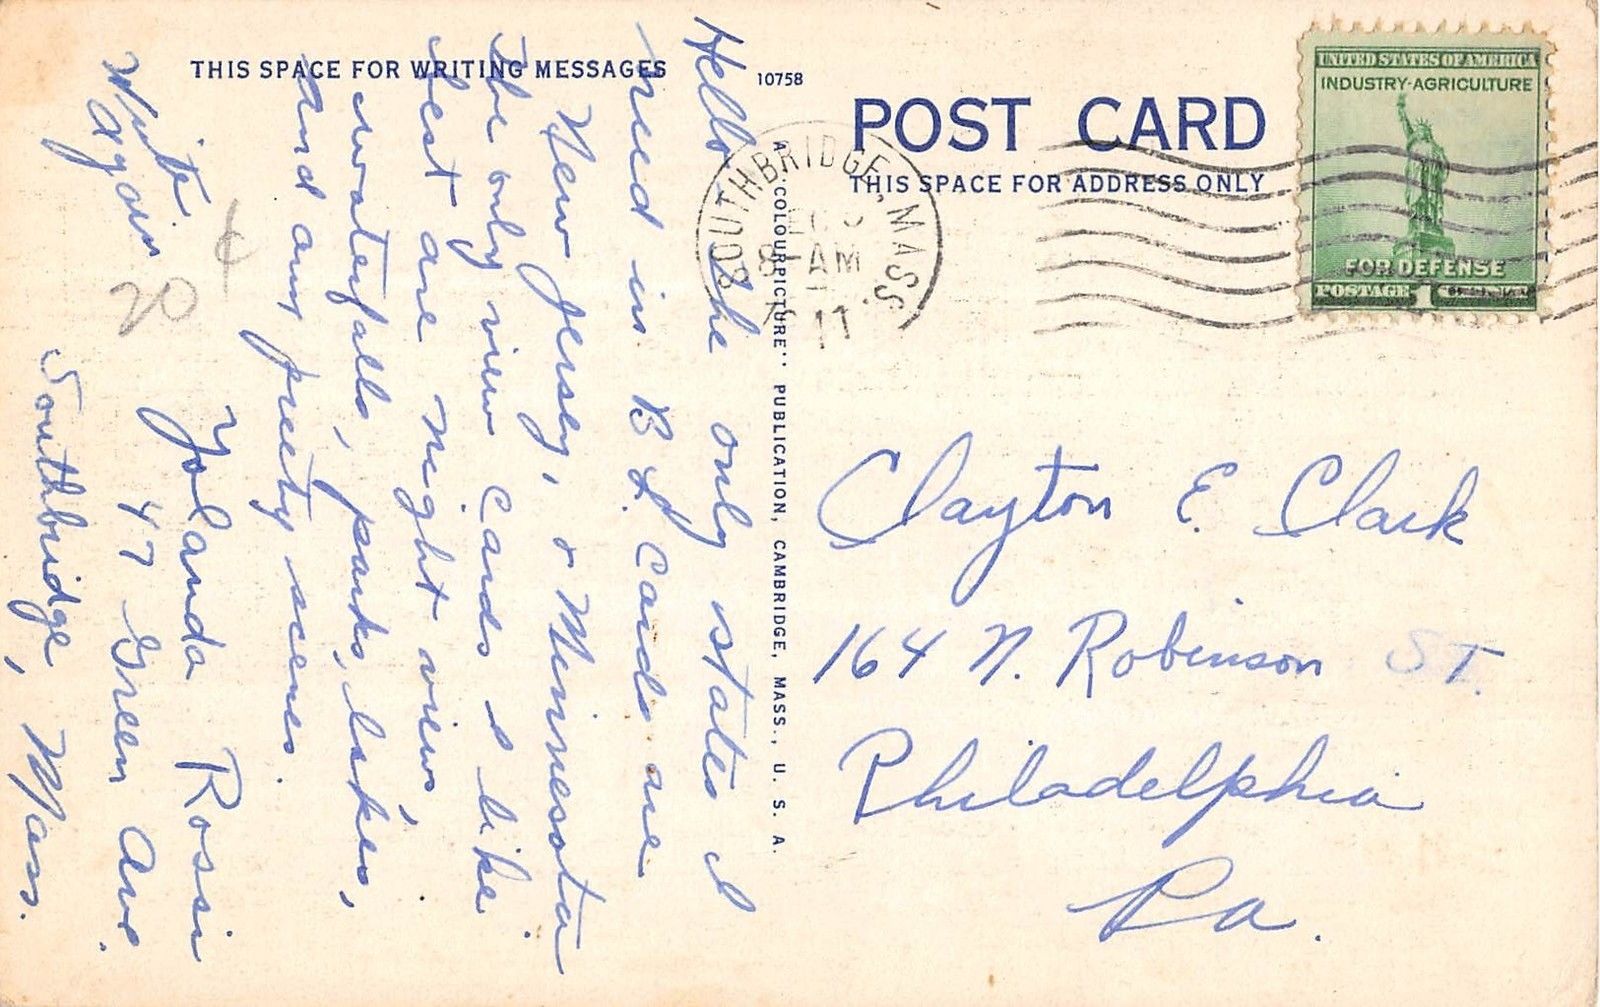 THIS SPACE FOR WRITING MESSAGES
10758
POST CARD
THIS SPACE FOR ADDRESS ONLY
A "COLOURPICTURE" PUBLICATION, CAMBRIDGE, MASS., U. S. A.
SOUTHBRIDGE, MASS.
8 AM
UNITED STATES OF AMERICA
INDUSTRY-AGRICULTURE
FOR DEFENSE
POSTAGE 1
Hello The only states I
need in B & L cards are
New Jersey, & Minnesota
The only view cards I like
best are night views,
waterfalls, parks, lakes,
and any pretty scenes.
Write
Again
Yolanda Rossi
47 Green Ave.
Southbridge, Mass.
4
20
Clayton E. Clark
164 N. Robinson ST.
Philadelphia
Pa.